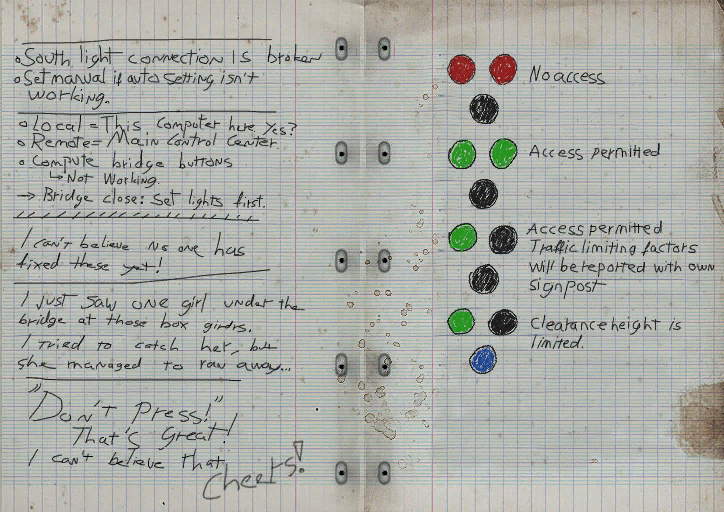 South light connection is broken
Set manual if auto setting isn't
working.
Local = This computer here, yes?
Remote = Main control center.
Compute bridge buttons
↳ Not working.
→ Bridge close: set lights first.
I can't believe no one has
fixed these yet!
I just saw one girl under the
bridge at those box girdrs.
I tried to catch her, but
she managed to run away...
"Don't Press!"
That's Great!
I can't believe that
Cheers!
No access
Access permitted
Access permitted.
Traffic limiting factors
will be reported with own
signpost
Clearance height is
limited.